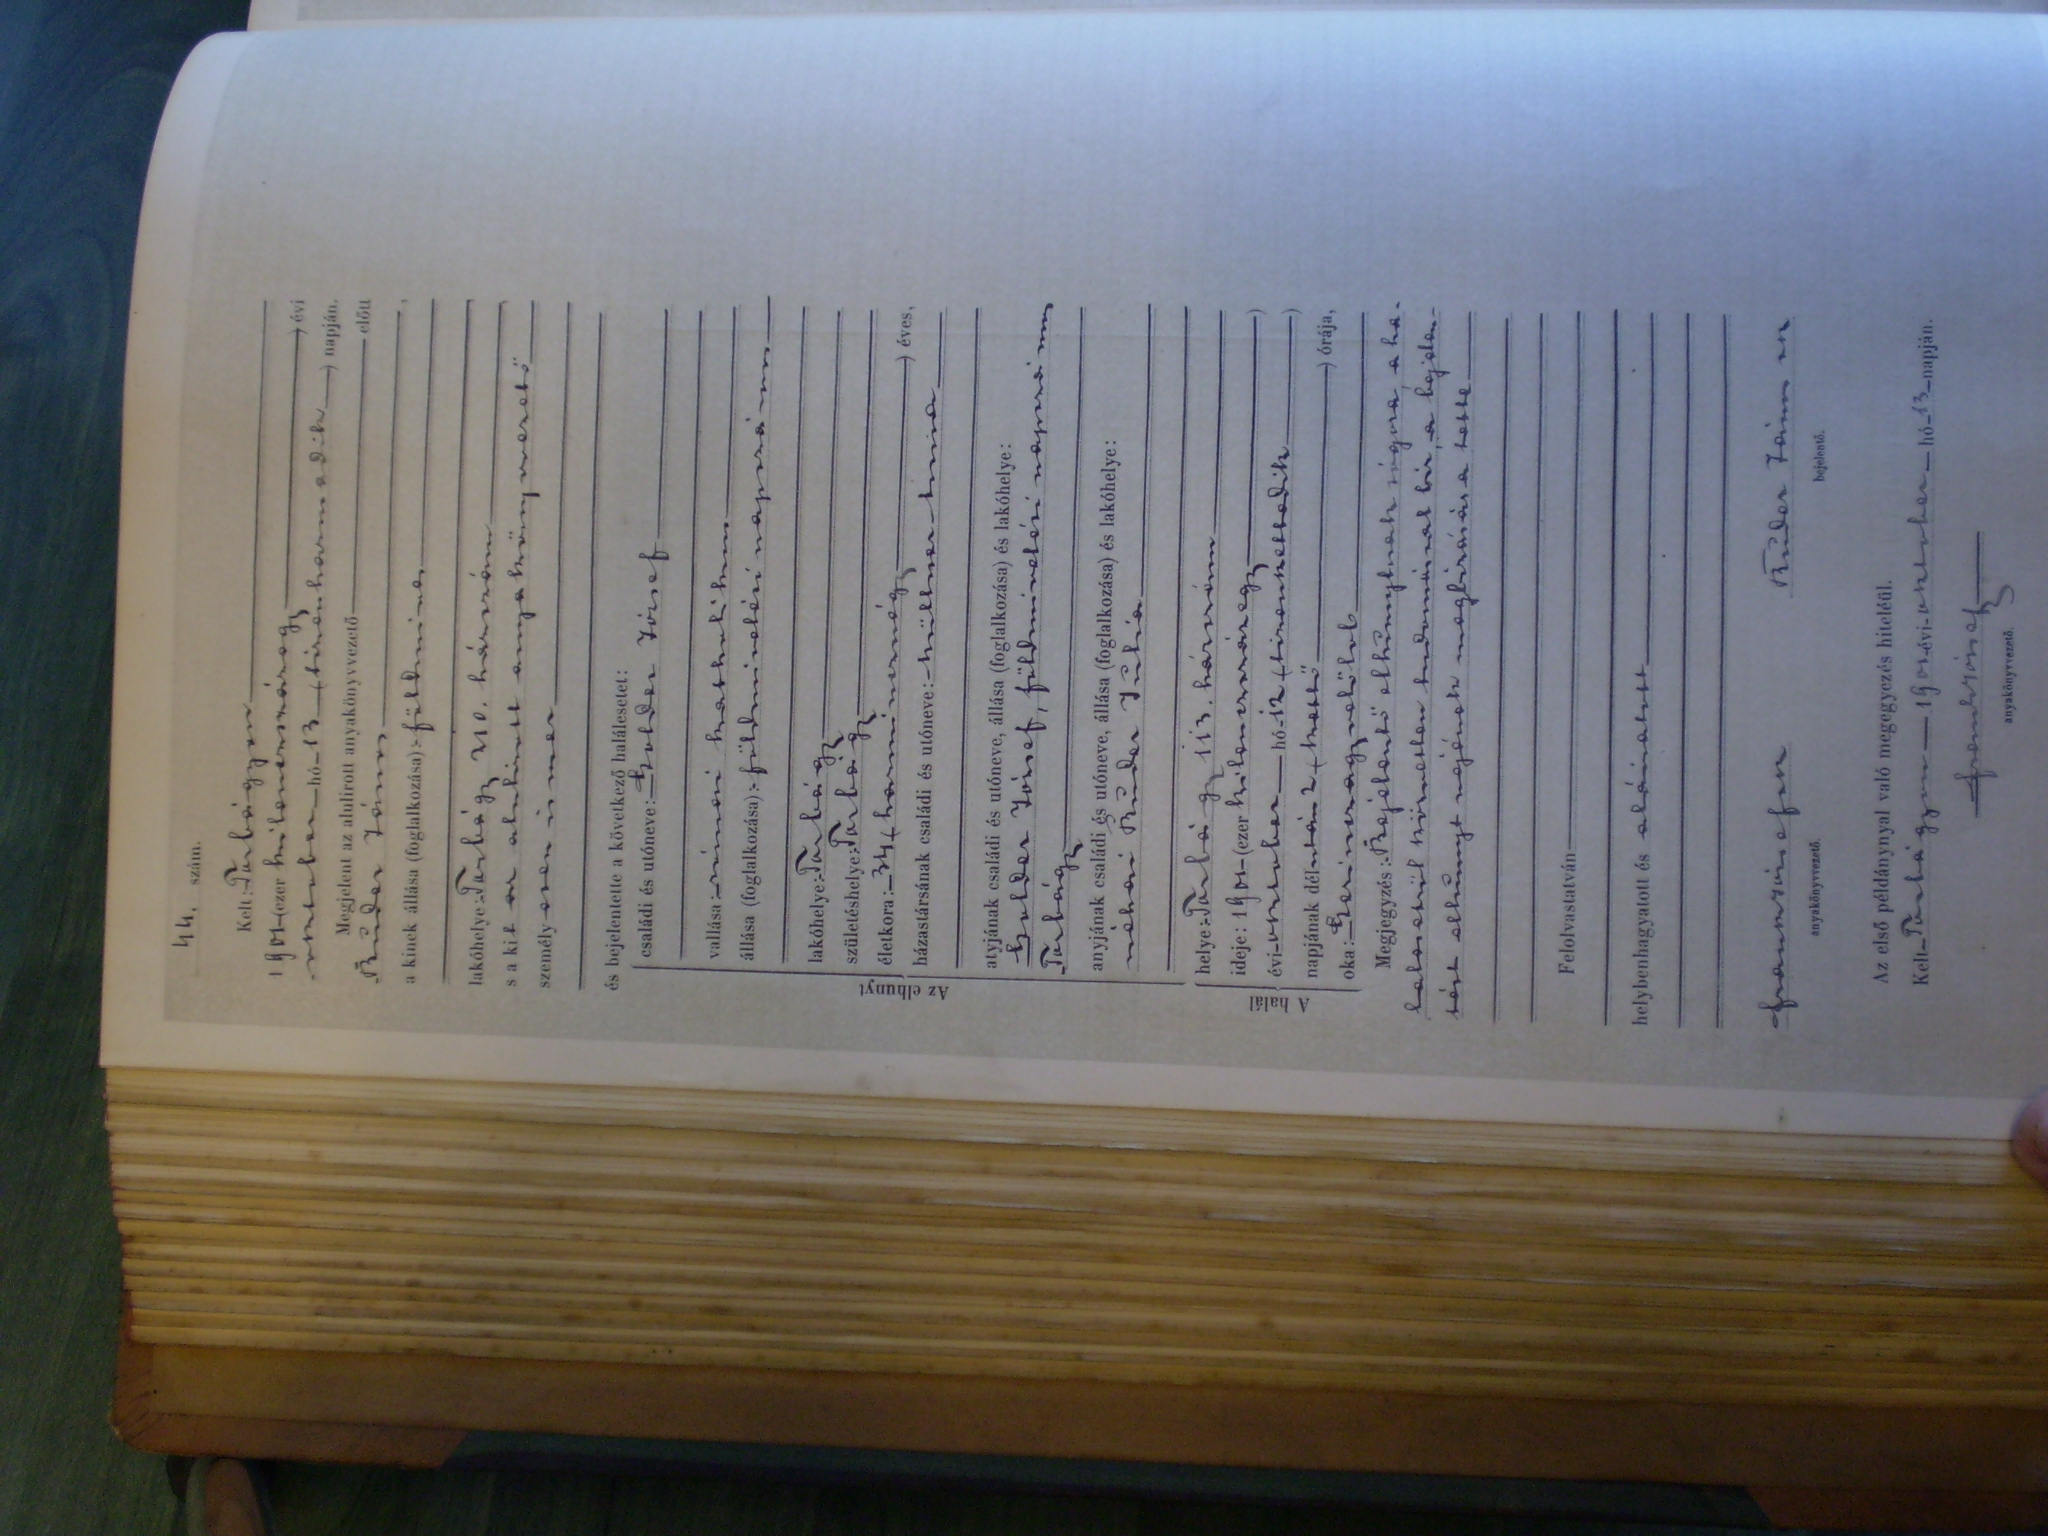 44. szám.
Kelt: Torbágyon
1901 (ezer kilencszázegy) évi
október hó 13 (tizenharmadik) napján.
Megjelent az alulirott anyakönyvvezető előtt
Bruder János
a kinek állása (foglalkozása): földmives,
lakóhelye: Torbágy 210. házszám
s a kit az alulirott anyakönyvvezető
személyesen ismer
és bejelentette a következő halálesetet:
Az elhunyt
családi és utóneve: József
vallása: római katholikus
állása (foglalkozása): földmivelési napszámos
lakóhelye: Torbágy
születéshelye: Torbágy
életkora: 34 (harmincznégy) éves,
házastársának családi és utóneve:
atyjának családi és utóneve, állása (foglalkozása) és lakóhelye:
József, földmivelési napszámos
Torbágy
anyjának családi és utóneve, állása (foglalkozása) és lakóhelye:
néhai Bruder Julia
A halál
helye: Torbágy 113. házszám
ideje: 1901 (ezer kilenczszázegy)
évi október hó 12 (tizenkettedik)
napjának délután 2 (kettő) órája,
oka:
Megjegyzés: Bejelentő elhunytnak sógora a ha-
lálesetről közvetlen tudomással bir, a bejelen-
tést elhunyt nejének megbizására tette
Felolvastatván
helybenhagyatott és aláiratott
anyakönyvvezető.
Bruder János
bejelentő.
Az első példánynyal való megegyezés hiteléül.
Kelt Torbágyon 1901 évi október hó 13 napján.
anyakönyvvezető.